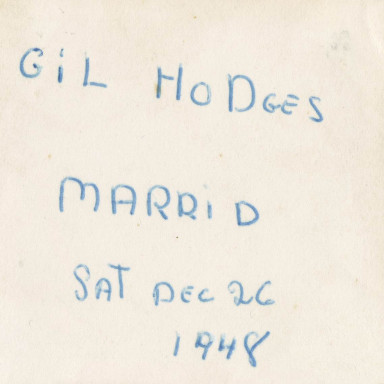 GiL HODGES
MARRiD
SAT DEC 26
1948